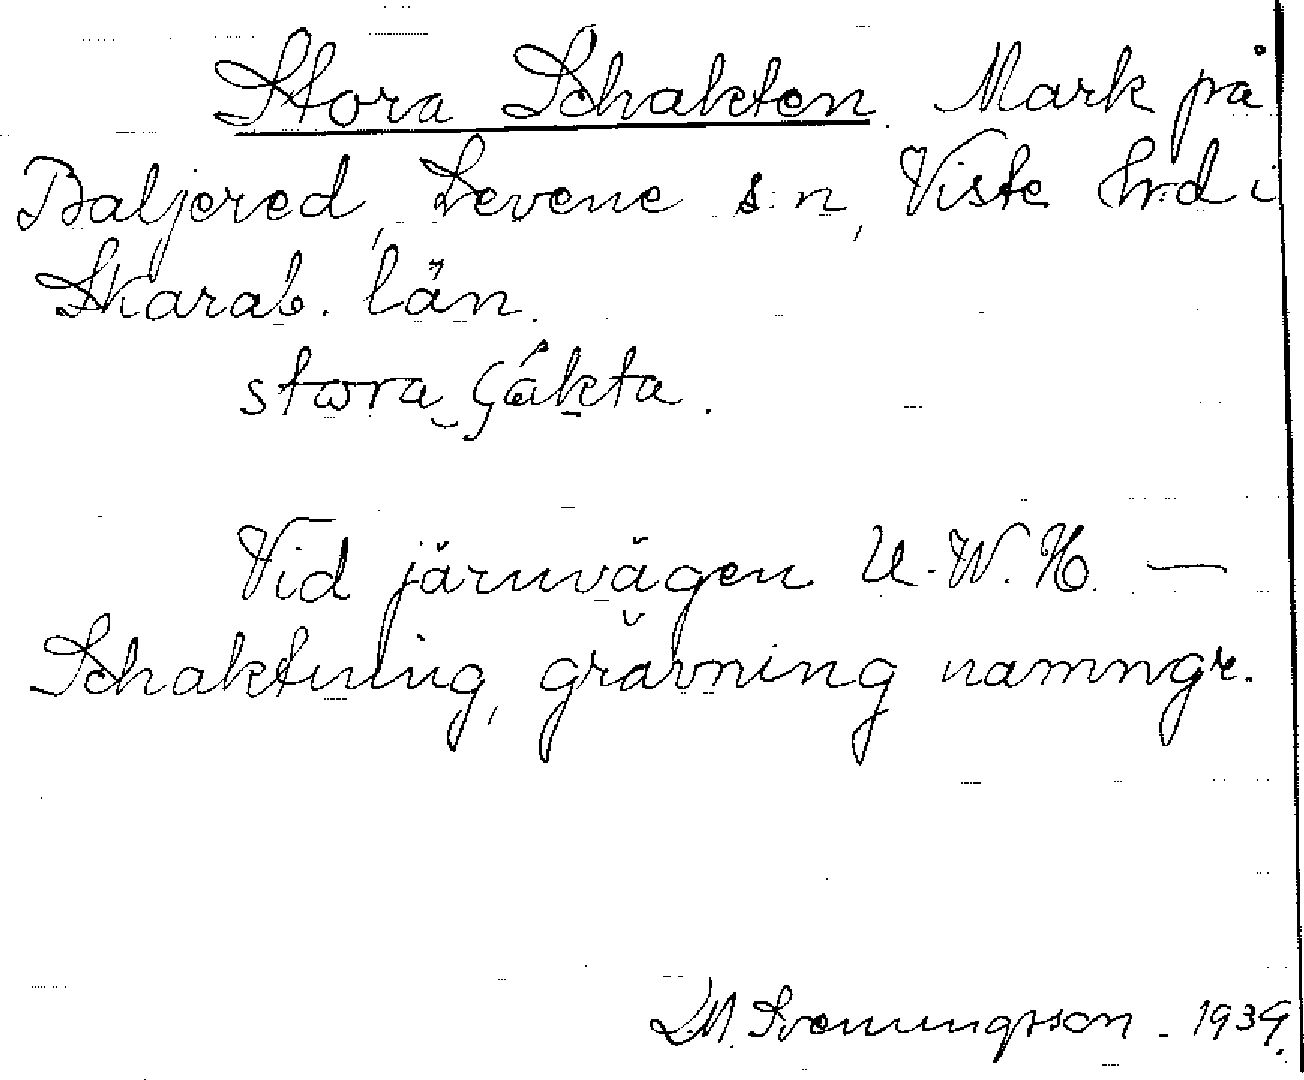 Stora Schakten. Mark på
Baljered, Levene s:n, Viste hrd i
Skarab. län.
stora çákta.
Vid järnvägen U.W.H. —
Schaktning, grävning namngr.
L.M. Svenungsson - 1939.